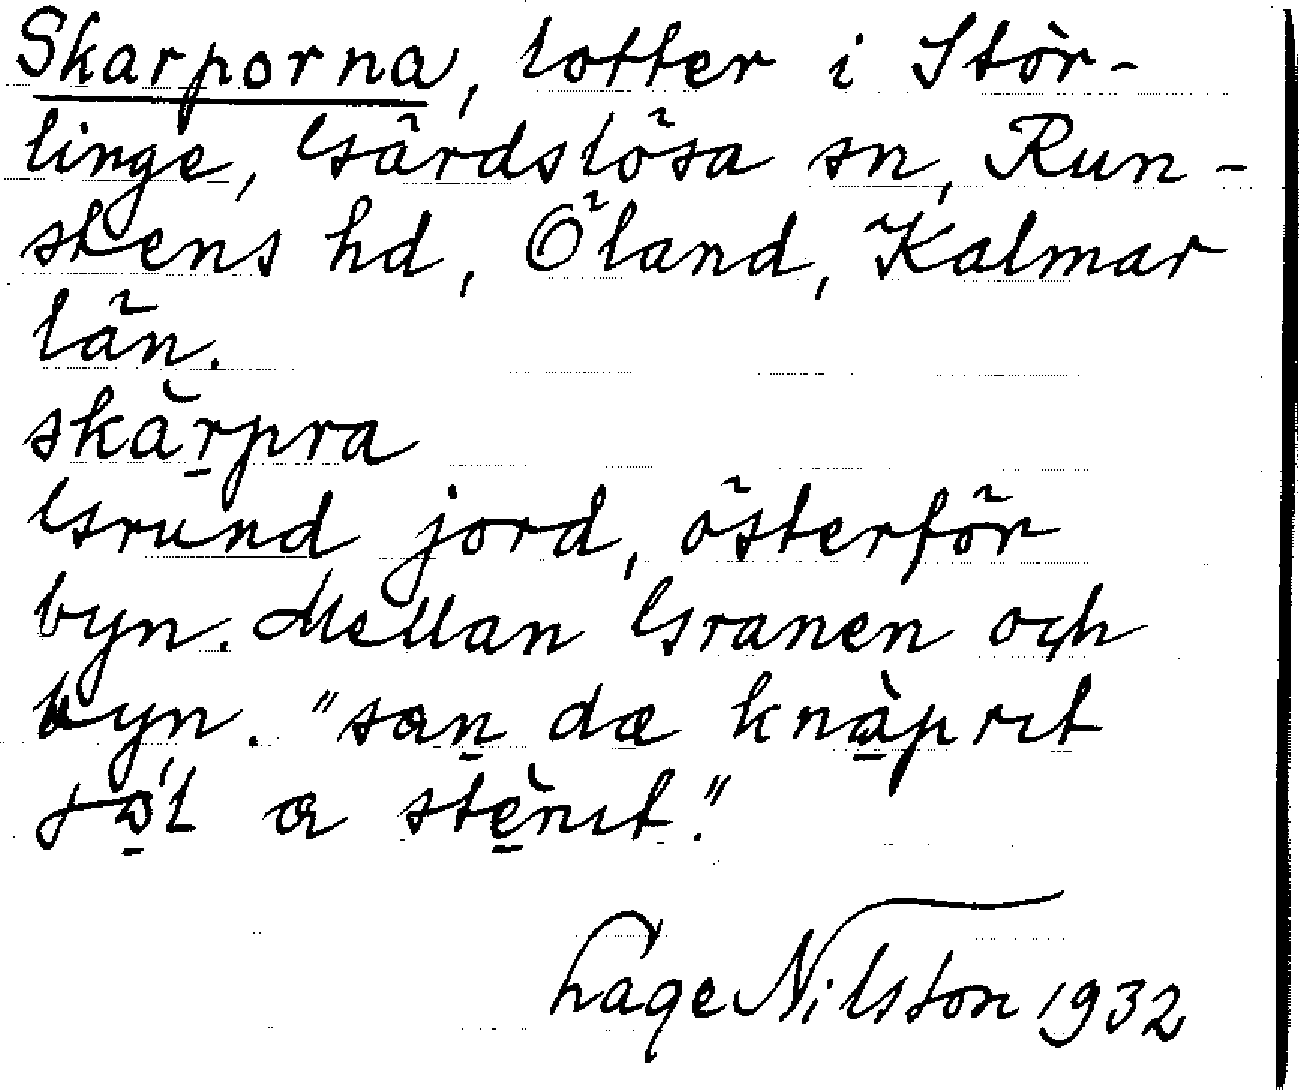 Skarporna, lotter i Stör-
linge, Gärdslösa sn, Run-
stens hd, Öland, Kalmar
län.
skàr̠pra
Grund jord, österför
byn. Mellan Granen och
byn. "san̠ dæ knà̠prıt
a stè̠nıt."
Lage Nilsson 1932